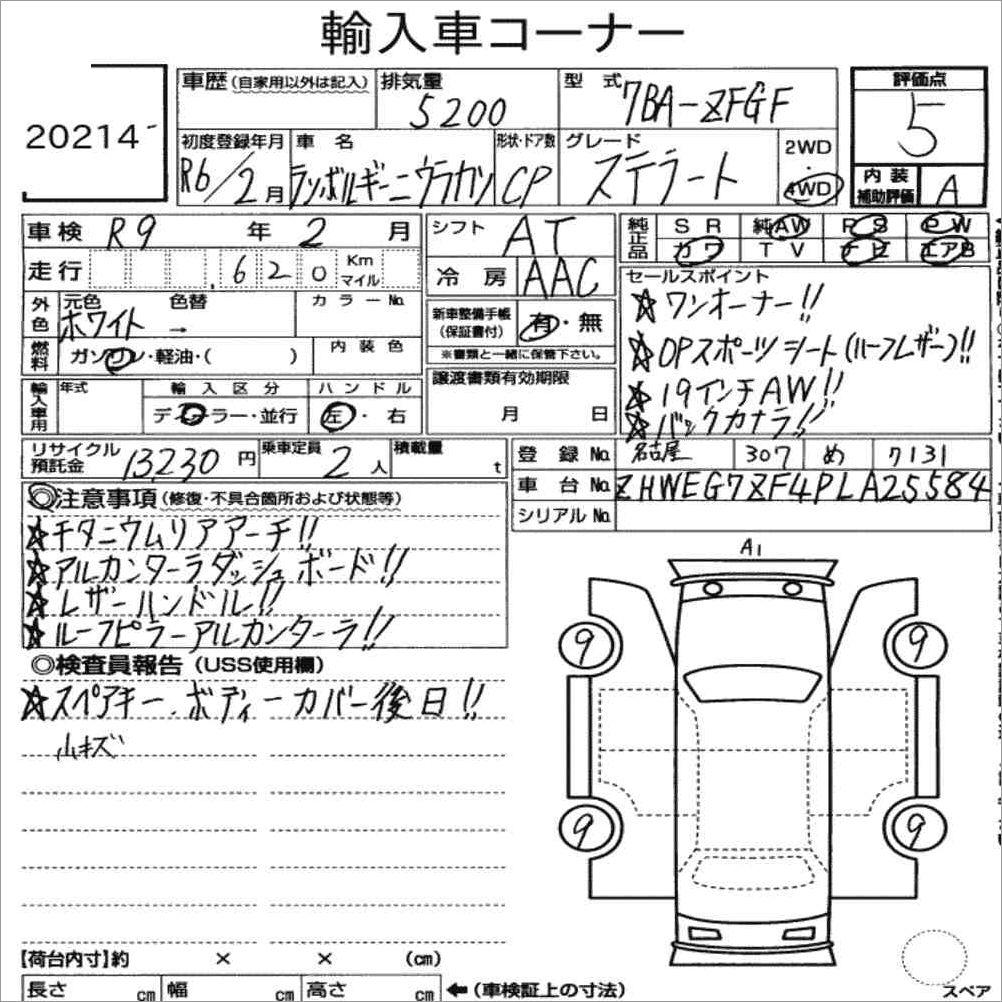 輸入車コーナー
20214
車歴(自家用以外は記入) 排気量 5200 型式 7BA-ZFGF
評価点 5
初度登録年月 R6/2月 車名 ランボルギーニウラカン 形状・ドア数 CP グレード ステラート 2WD・4WD
内装補助評価 A
車検 R9年2月 シフト AT 純正品 SR 純AW PS PW
カワ TV ナビ エアB
走行 620 Km マイル 冷房 AAC
セールスポイント
外色 元色 ホワイト 色替 → カラーNo.
新車整備手帳(保証書付) 有・無
※書類と一緒に保管下さい。
☆ワンオーナー!!
燃料 ガソリン・軽油・( ) 内装色
☆OPスポーツシート(ハーフレザー)!!
輸入車用 年式 輸入区分 ディーラー・並行 ハンドル 左・右
譲渡書類有効期限 月 日
☆19インチAW!!
☆バックカメラ!!
リサイクル預託金 13230円 乗車定員 2人 積載量 t
登録No. 名古屋 307 め 7131
車台No. ZHWEG7ZF4PLA25584
シリアルNo.
◎注意事項(修復・不具合箇所および状態等)
☆チタニウムリアアーチ!!
☆アルカンターラダッシュボード!!
☆レザーハンドル!!
☆ルーフピラーアルカンターラ!!
◎検査員報告(USS使用欄)
☆スペアキー、ボディーカバー後日!!
小キズ
A1
9 9
9 9
【荷台内寸】約 × × (cm)
長さ cm 幅 cm 高さ cm ←(車検証上の寸法)
スペア